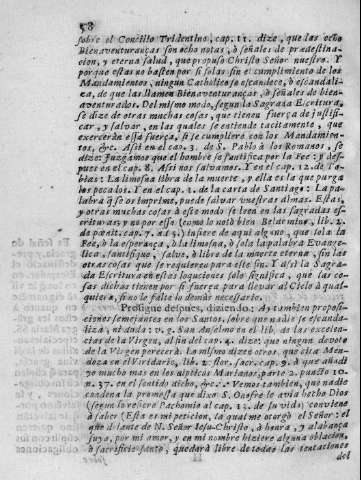 58
sobre el Concilio Tridentino, cap. 11. dize, que las ocho
Bienaventuranças son ocho notas, ò señales de prædestina-
cion, y eterna salud, que propuso Christo Señor nuestro. Y
porque estas no basten por si solas sin el cumplimiento de los
Mandamientos, ningun Catholico se escandece, ò escandali-
ca, de que las llamen Bienaventuranças, ò señales de bien-
aventurados. Del mismo modo, segun la Sagrada Escritura,
se dize de otras muchas cosas, que tienen fuerça de justifi-
car, y salvar, en las quales se entiende tacitamente, que
exerceràn essa fuerça, si se cumpliere con los Mandamien-
tos, &c. Assi en el cap. 3. de S. Pablo à los Romanos, se
dize: Juzgamos que el hombre se justifica por la Fee: y des-
pues en el cap. 8. Assi nos salvamos. Y en el cap. 12. de To-
bias: La limosna libra de la muerte, y ella es la que purga
los pecados. Y en el cap. 1. de la carta de Santiago: La pa-
labra q̃ se os imprime, puede salvar vuestras almas. Estas,
y otras muchas cosas à este modo se leen en las sagradas es-
crituras: y no por esso (como lo notò bien Belarmino, lib. 2.
de pœnit. cap. 7. a 13.) infiere de aqui alguno, que sola la
Fee, ò la esperança, ò la limosna, ò sola la palabra Evange-
lica, santifique, salve, ò libre de la muerte eterna, sin las
otras cosas que se requieren para este fin. Y assi la Sagra-
da Escritura en estas loquciones solo significa, que las co-
sas dichas tienen por si fuerça para llevar al Cielo à qual-
quiera, si no le falta lo demàs necessario.
Prosigue despues, diziendo: Ay tambien proposi-
ciones semejantes en los Santos, sobre que nadie se escanda-
liza, ni duda: v. g. San Anselmo en el lib. de las excelen-
cias de la Virgen, al fin del cap. 4. dize: que ningun devoto
de la Virgen perecerà. Lo mismo dizen otros, que cita Men-
doza en el Viridario, lib. 2. Pro. sacr. cap. 9. à que añadi
yo mucho mas en los dipticos Marianos, parte 2. puncto 10.
n. 37. en el sentido dicho, &c. Vemos tambien, que nadie
condena la promessa que dixo S. Onofre le avia hecho Dios
(segun lo refiere Pachomio al cap. 13. de su vida) conviene
à saber (Esta es mi peticion, la qual me otorgò el Señor: el
que delante de N. Señor Iesu-Christo, à honra, y alabança
suya, por mi amor, y en mi nombre hiziere alguna oblacion,
ò sacrificio santo, quedarà libre de todas las tentaciones
del